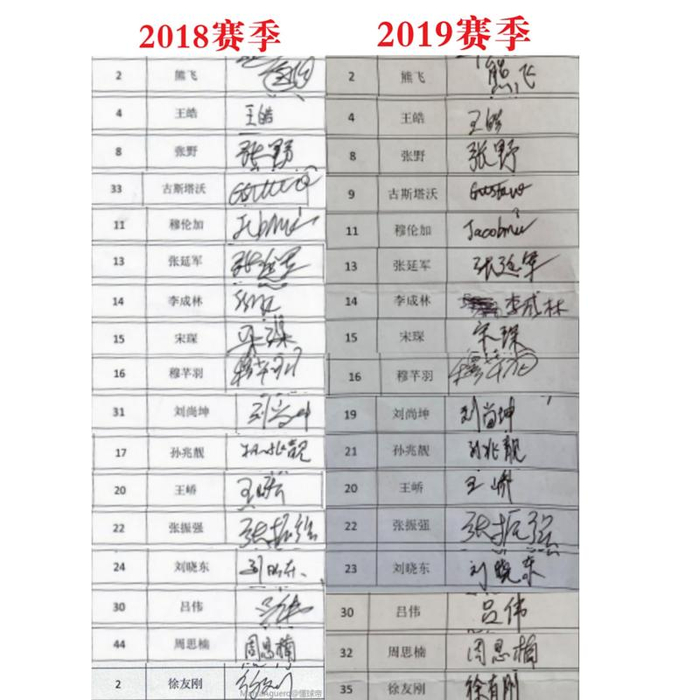 2018赛季 2019赛季
2 熊飞 2 熊飞 熊飞
4 王皓 王皓 4 王皓 王皓
8 张野 张野 8 张野 张野
33 古斯塔沃 9 古斯塔沃 Gustavo
11 穆伦加 11 穆伦加
13 张延军 张延军 13 张延军 张延军
14 李成林 14 李成林 李成林
15 宋琛 宋琛 15 宋琛 宋琛
16 穆芊羽 16 穆芊羽
31 刘尚坤 刘尚坤 19 刘尚坤 刘尚坤
17 孙兆靓 孙兆靓 21 孙兆靓 孙兆靓
20 王峤 20 王峤 王峤
22 张振强 张振强 22 张振强 张振强
24 刘晓东 刘晓东 23 刘晓东 刘晓东
30 吕伟 30 吕伟 吕伟
44 周思楠 周思楠 32 周思楠 周思楠
2 徐友刚 35 徐友刚 徐有刚